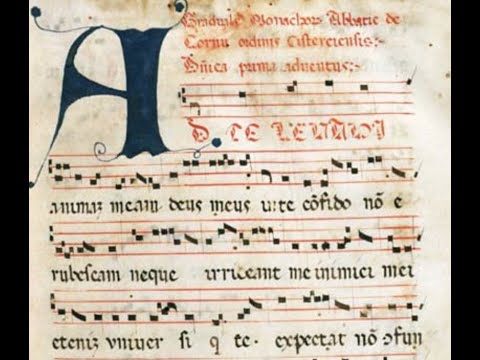 Graduale Monachor Abbatie de
Cornu ordinis Cisterciensis:
Dñica prima adventus:
AD TE LEVAVI
animaz meam deus meus in te cõfido nõ e
rubescam neque irrideant me inimici mei
eteniz univer si q te expectat nõ cõfun